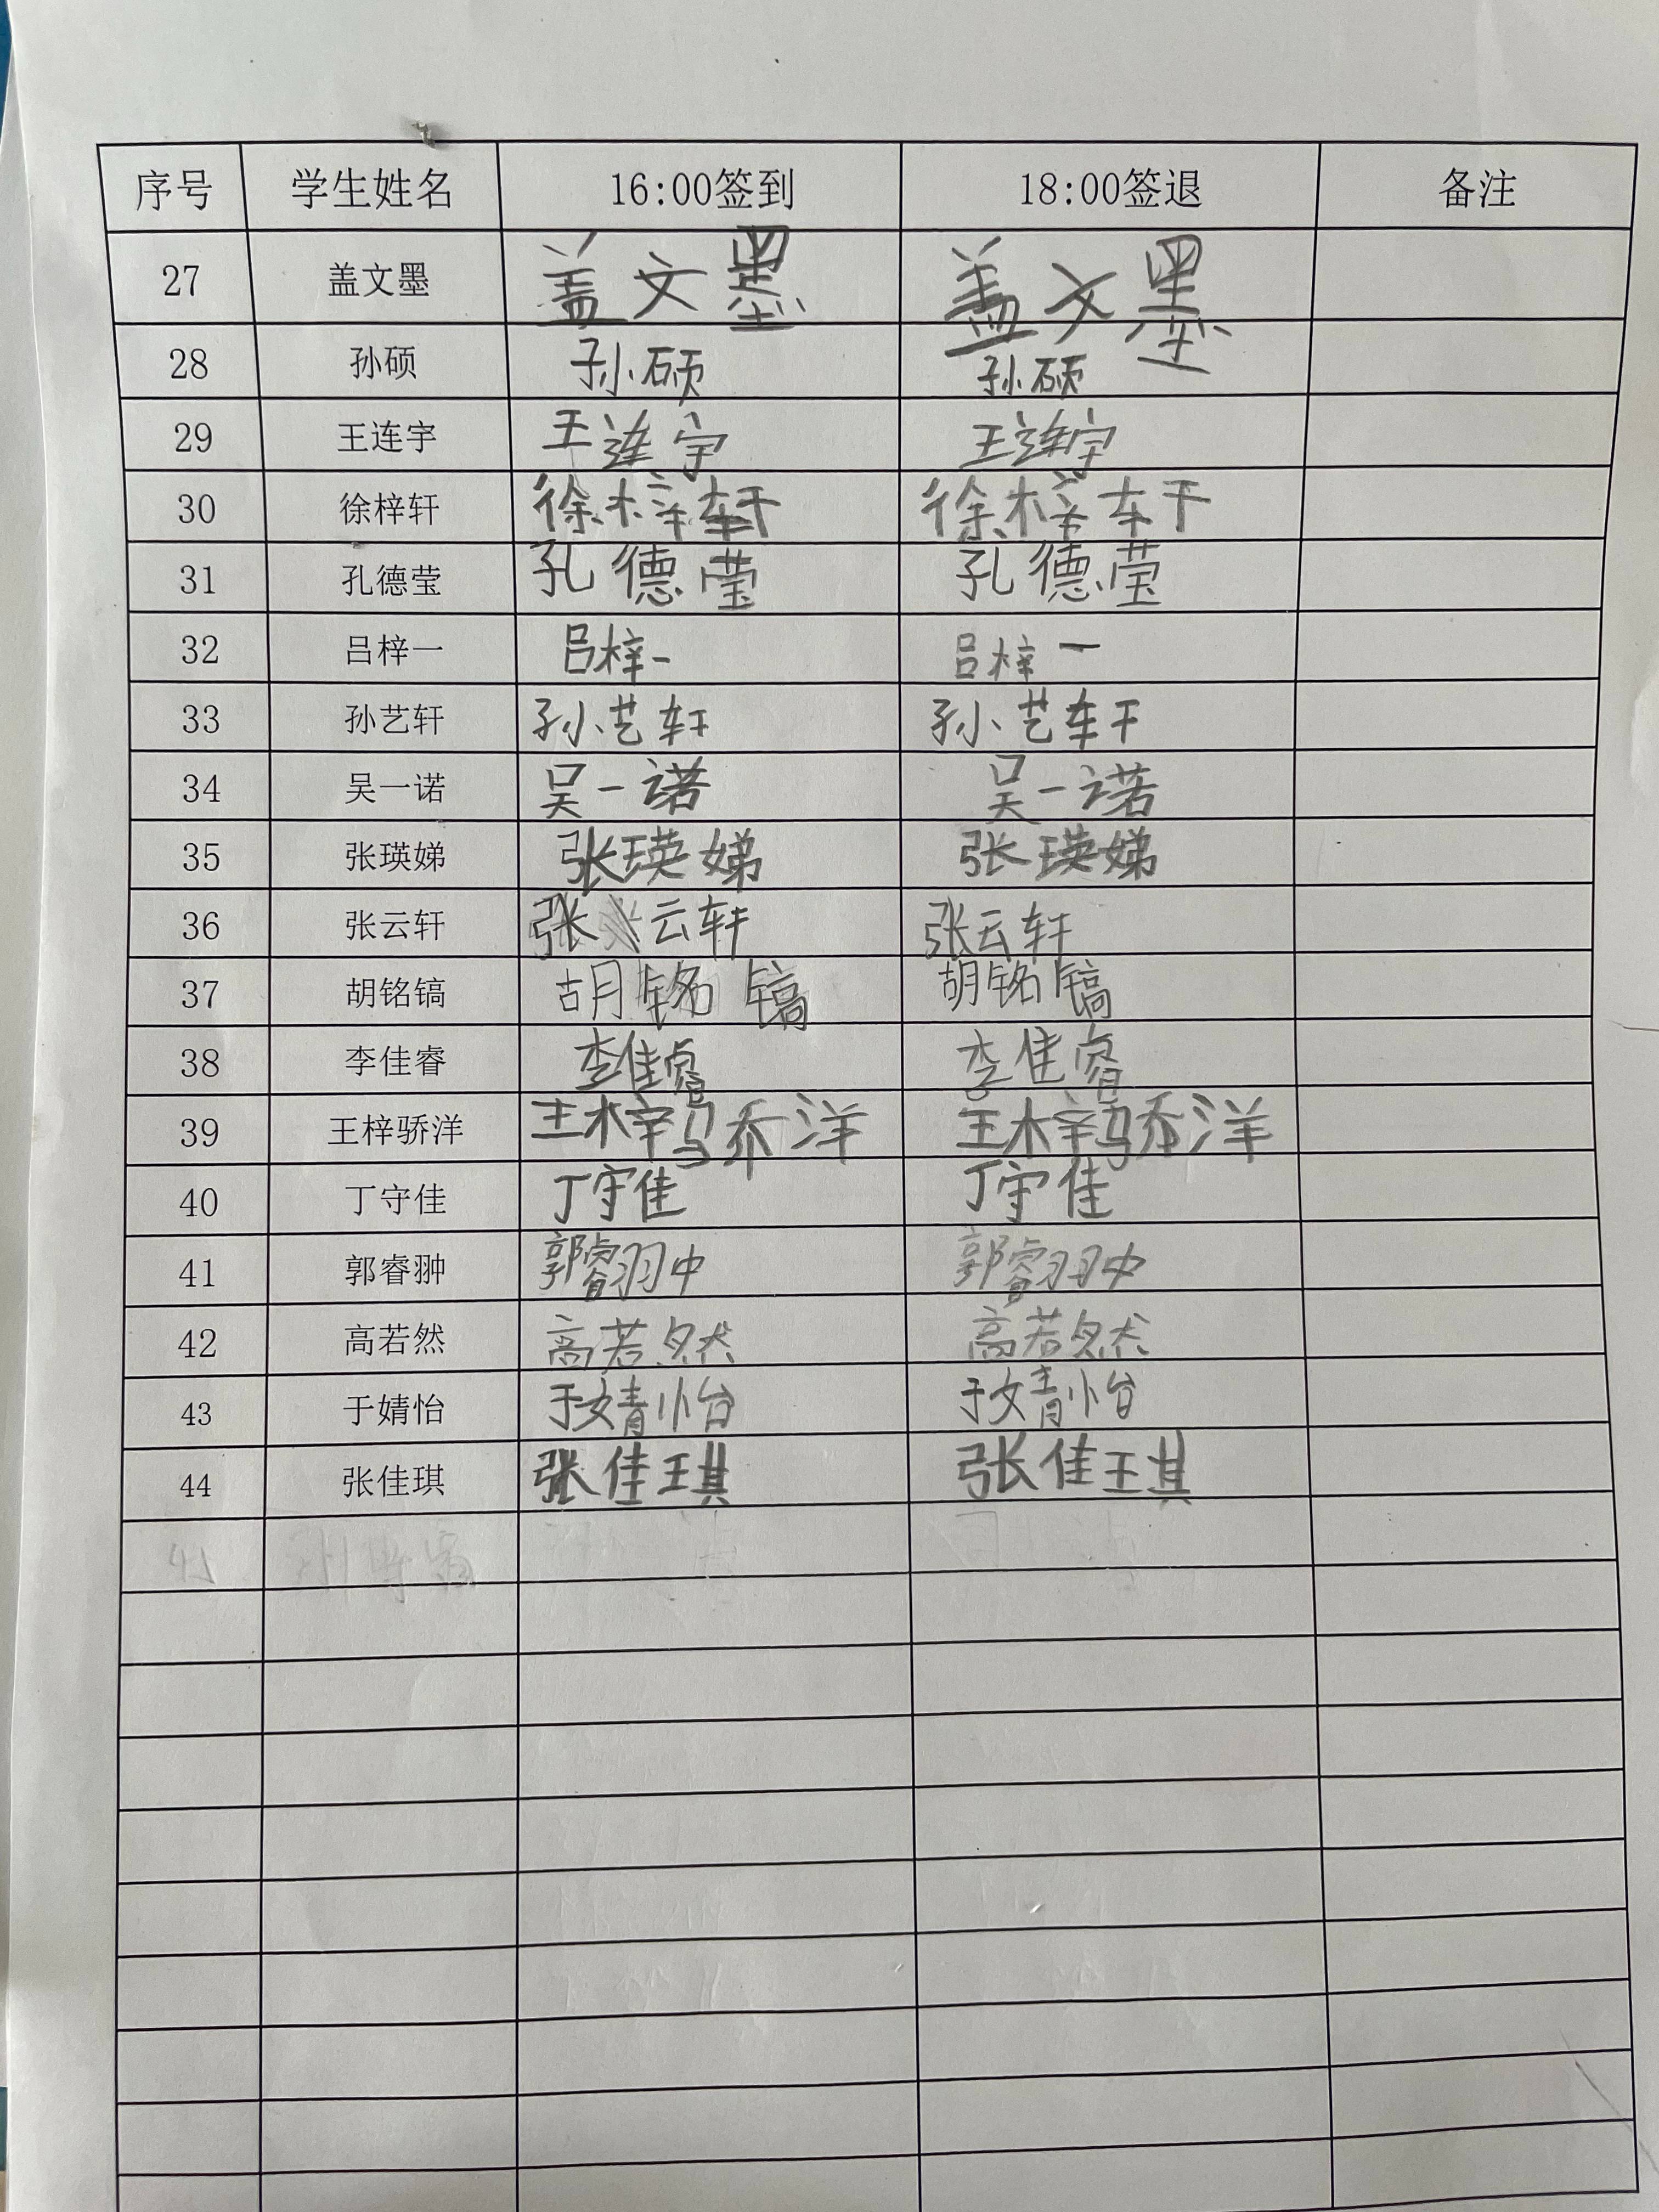 序号 学生姓名 16:00签到 18:00签退 备注
27 盖文墨 盖文墨 盖文墨
28 孙硕 孙硕 孙硕
29 王连宇 王连宇 王连宇
30 徐梓轩 徐梓轩 徐梓轩
31 孔德莹 孔德莹 孔德莹
32 吕梓一 吕梓一 吕梓一
33 孙艺轩 孙艺轩 孙艺轩
34 吴一诺 吴一诺 吴一诺
35 张瑛娣 张瑛娣 张瑛娣
36 张云轩 张云轩 张云轩
37 胡铭镐 胡铭镐 胡铭镐
38 李佳睿 李佳睿 李佳睿
39 王梓骄洋 王梓骄洋 王梓骄洋
40 丁守佳 丁守佳 丁守佳
41 郭睿翀 郭睿翀 郭睿翀
42 高若然 高若然 高若然
43 于婧怡 于婧怡 于婧怡
44 张佳琪 张佳琪 张佳琪